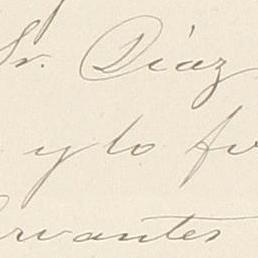 Sr. Díaz
y lo fir
ervantes